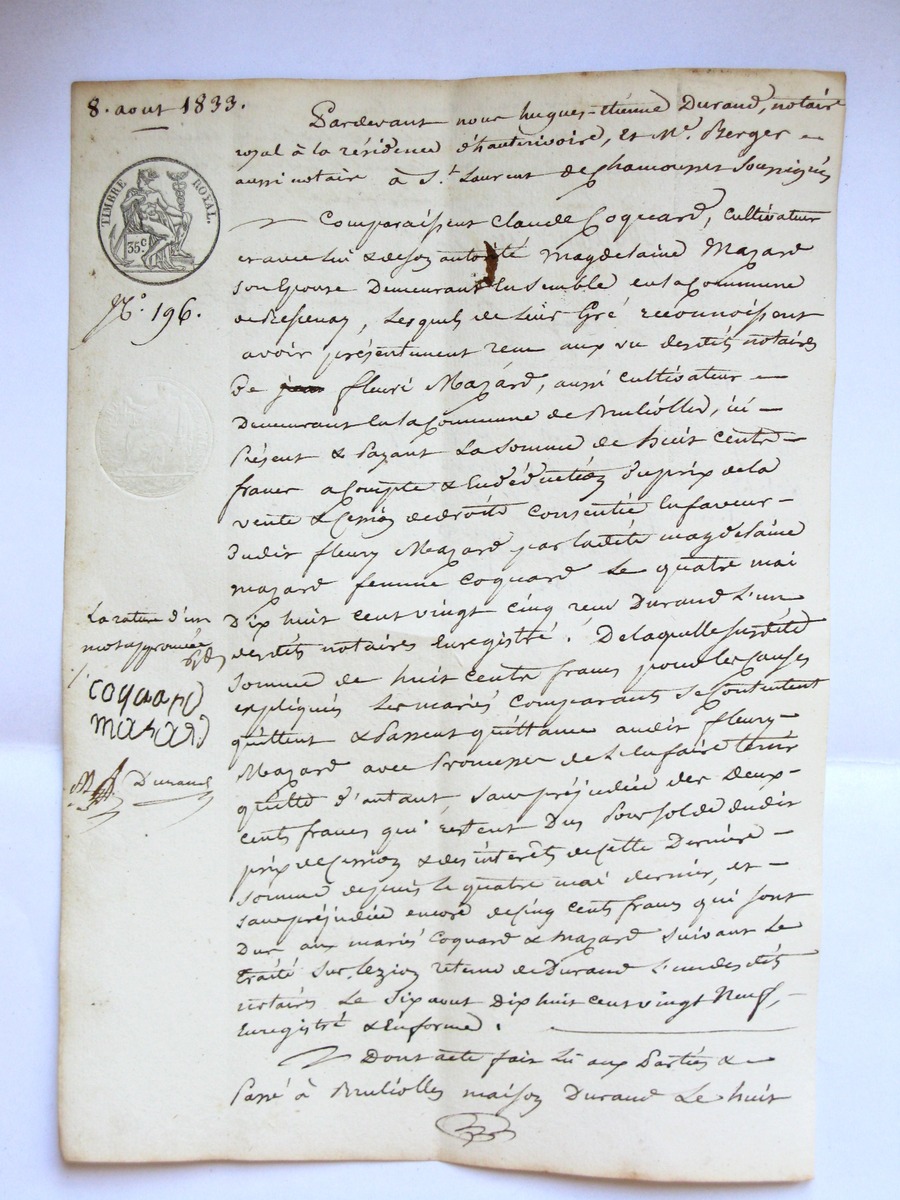 8. aout 1833.
TIMBRE ROYAL.
35c
N° 196.
Pardevant nous hugues-étienne Durand, notaire
royal à la résidence d'hauterivoire, et Me. Berger
aussi notaire à St. Laurent de chamousset soussignés
Comparaissent Claude Coquard, cultivateur
et avec lui & de son autorité magdelaine Mazard
son épouse demeurant ensemble en la commune
de Bessenay, lesquels de leur gré reconnoissent
avoir présentement reçu aux vu desdits notaires
De jean fleuri Mazard, aussi cultivateur
demeurant en la commune de Bruliolles, ici
présent & payant la somme de huit cents
francs acompte & en déduction du prix de la
vente & cession de droits consentie en faveur
dudit fleury Mazard par ladite magdelaine
mazard femme coquard le quatre mai
dix huit cent vingt cinq reçu Durand l'un
desdits notaires enregistré. De laquelle susdite
somme de huit cents francs pour les causes
expliqués les mariés comparants se contentent
quittent & passent quittance audit fleury
Mazard avec promesse de l'en faire tenir
quitte d'autant, sans préjudice des deux
cents francs qui restent dus pour solde dudit
prix de cession & des intérêts de cette dernière
somme depuis le quatre mai dernier, et
sans préjudice encore de cinq cents francs qui sont
dus aux mariés coquard & mazard suivant le
traité sur lezion retenu de Durand l'un desdits
notaires le six aout dix huit cent vingt neuf,
enregistré & en forme.
Dont acte fait lu aux parties &
passé à Bruliolles maison Durand le huit
La rature d'un
mot approuvée
coquard
mazard
Durand